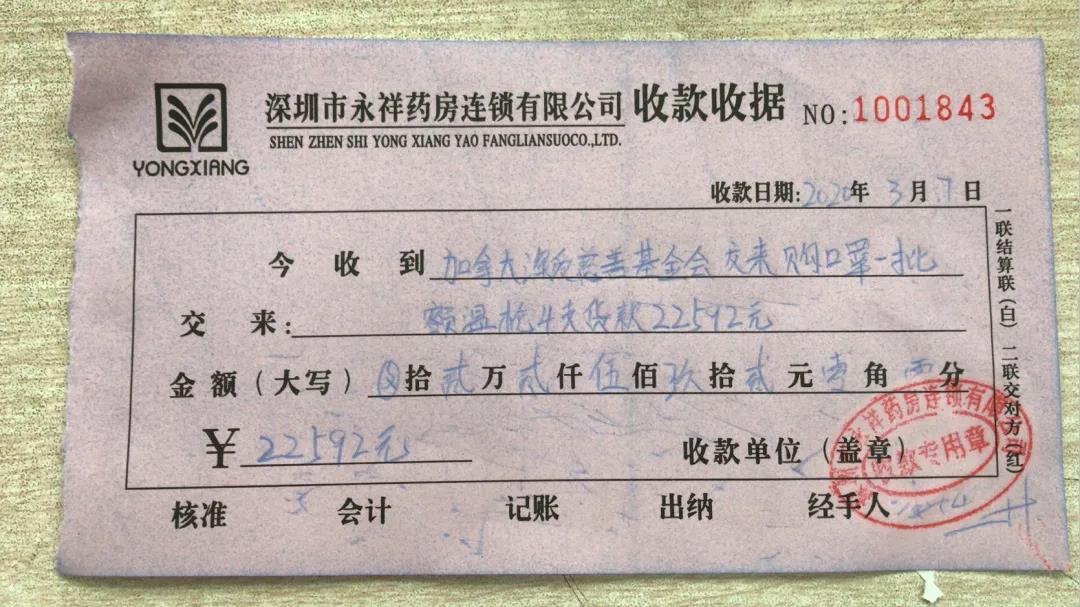 深圳市永祥药房连锁有限公司 收款收据 NO:1001843
SHEN ZHEN SHI YONG XIANG YAO FANGLIANSUOCO.,LTD.
YONGXIANG
收款日期:2020年3月7日
今收到 加拿大 慈善基金会交来购口罩一批
交来: 额温枪4支货款22592元
金额(大写) 拾贰万贰仟伍佰玖拾贰元零角零分
¥22592元 收款单位(盖章)
核准 会计 记账 出纳 经手人
一联结算联(白) 二联交对方(红)
永祥药房连锁有限
收款专用章